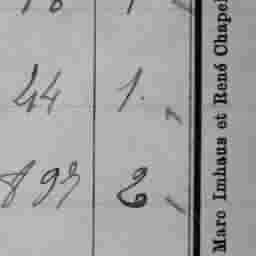 44 1.
893 2
Marc Imhaus et René Chapel